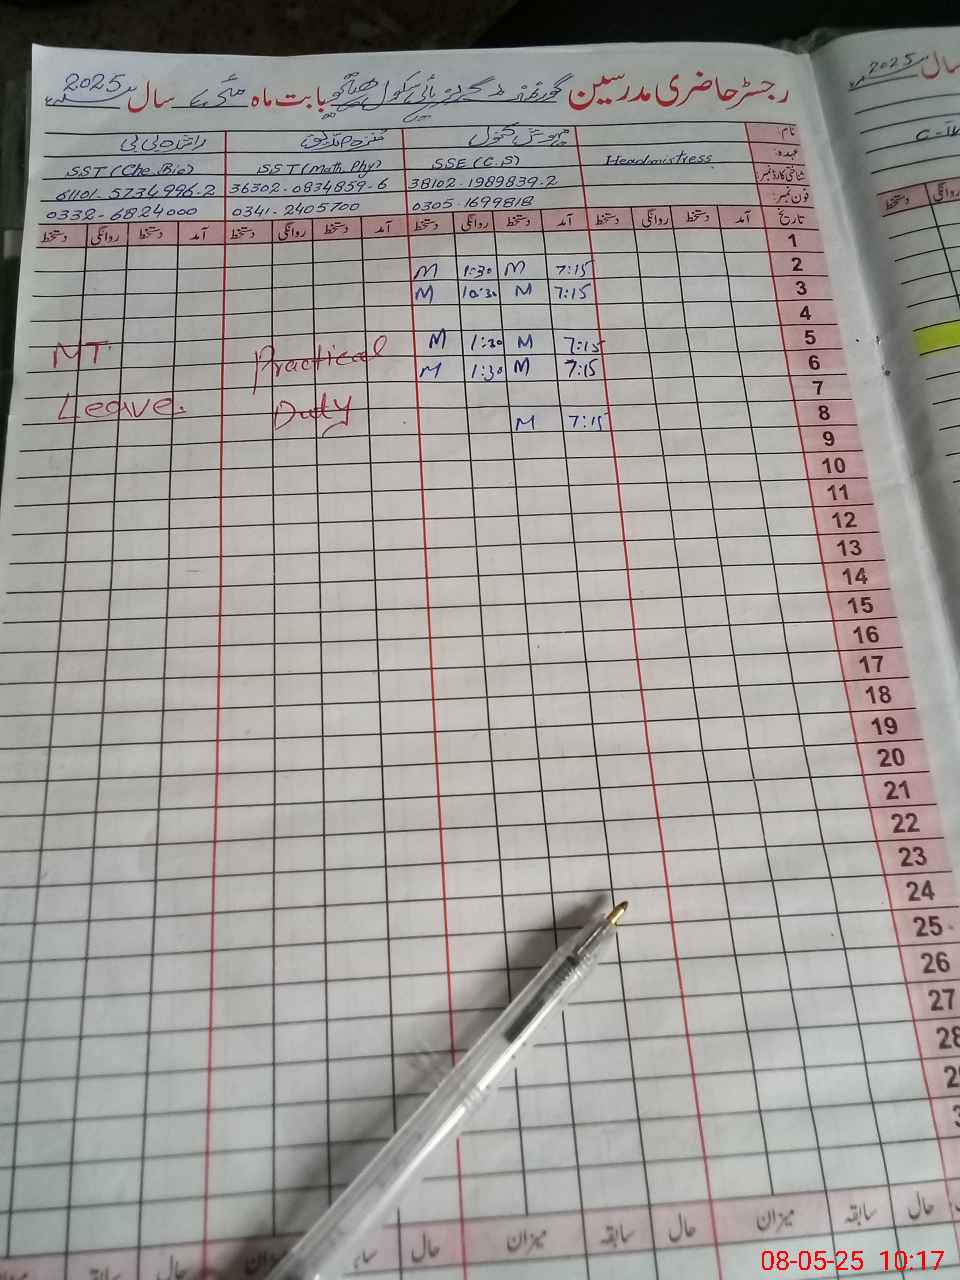 رجسٹر حاضری مدرسین گورنمنٹ گرلز ہائی سکول بابت ماہ مئی سال 2025
نام:
عہدہ: Headmistress SSE (C.S) SST (Math, Phy) SST (Che, Bio)
شناختی کارڈ نمبر: 38102-1989839-2 36302-0834859-6 61101-5734996-2
فون نمبر: 0305-1699818 0341-2405700 0332-6824000
تاریخ آمد دستخط روانگی دستخط آمد دستخط روانگی دستخط آمد دستخط روانگی دستخط آمد دستخط روانگی دستخط
1
2 7:15 M 1:30 M
3 7:15 M 10:30 M
4
5 7:15 M 1:30 M
6 7:15 M 1:30 M
Practical
MT
7
8 7:15 M
Duty
Leave.
9
10
11
12
13
14
15
16
17
18
19
20
21
22
23
24
25
26
27
28
حال سابقہ میزان حال سابقہ میزان حال
سال 2025
روانگی دستخط
08-05-25 10:17